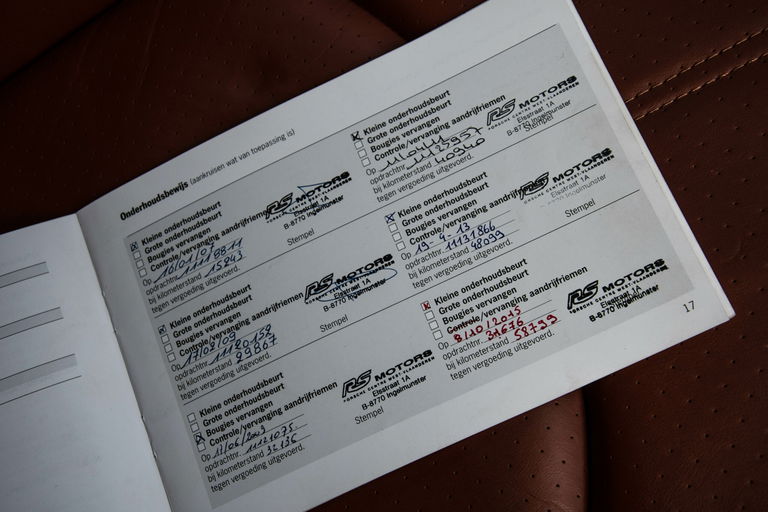 Onderhoudsbewijs (aankruisen wat van toepassing is)
Kleine onderhoudsbeurt
Grote onderhoudsbeurt
Bougies vervangen
Controle/vervanging aandrijfriemen
Op
opdrachtnr.
bij kilometerstand 15943
tegen vergoeding uitgevoerd.
RS MOTORS
PORSCHE CENTRE WEST-VLAANDEREN
Elsstraat 1A
B-8770 Ingelmunster
Stempel
Kleine onderhoudsbeurt
Grote onderhoudsbeurt
Bougies vervangen
Controle/vervanging aandrijfriemen
Op 17/08/09
opdrachtnr. 1120158
bij kilometerstand
tegen vergoeding uitgevoerd.
RS MOTORS
PORSCHE CENTRE WEST-VLAANDEREN
Elsstraat 1A
B-8770 Ingelmunster
Stempel
Kleine onderhoudsbeurt
Grote onderhoudsbeurt
Bougies vervangen
Controle/vervanging aandrijfriemen
Op
opdrachtnr. 1121075
bij kilometerstand 32136
tegen vergoeding uitgevoerd.
RS MOTORS
PORSCHE CENTRE WEST-VLAANDEREN
Elsstraat 1A
B-8770 Ingelmunster
Stempel
Kleine onderhoudsbeurt
Grote onderhoudsbeurt
Bougies vervangen
Controle/vervanging aandrijfriemen
Op
opdrachtnr. 1125957
bij kilometerstand 40940
tegen vergoeding uitgevoerd.
RS MOTORS
PORSCHE CENTRE WEST-VLAANDEREN
Elsstraat 1A
B-8770 Ingelmunster
Stempel
Kleine onderhoudsbeurt
Grote onderhoudsbeurt
Bougies vervangen
Controle/vervanging aandrijfriemen
Op 19-4-13
opdrachtnr. 11131866
bij kilometerstand 48099
tegen vergoeding uitgevoerd.
RS MOTORS
PORSCHE CENTRE WEST-VLAANDEREN
Elsstraat 1A
B-8770 Ingelmunster
Stempel
Kleine onderhoudsbeurt
Grote onderhoudsbeurt
Bougies vervangen
Controle/vervanging aandrijfriemen
Op 8/10/2015
opdrachtnr. 31676
bij kilometerstand 58799
tegen vergoeding uitgevoerd.
RS MOTORS
PORSCHE CENTRE WEST-VLAANDEREN
Elsstraat 1A
B-8770 Ingelmunster
17